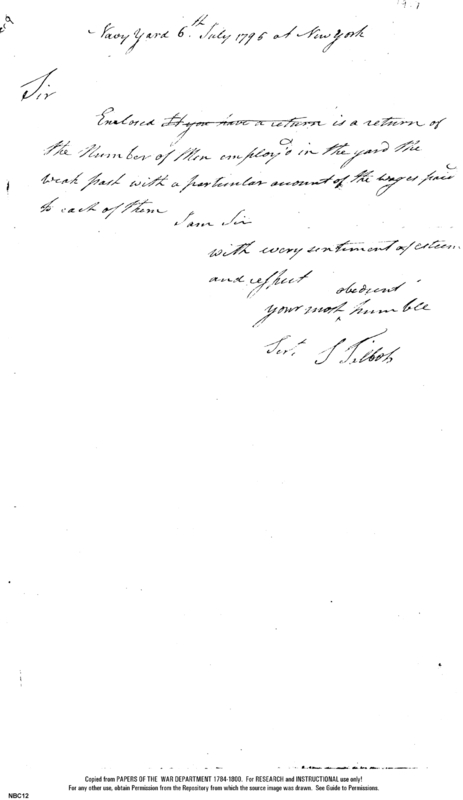 Navy Yard 6.th July 1795 at New York
Sir
Enclosed is a return of
the Number of Men employ'd in the yard the
weak past with a particular amount of the wages paid
to each of them
I am Sir
with every sentiment of esteem
and respect
obedient
your most humble
Servt. S Talbot
Copied from PAPERS OF THE WAR DEPARTMENT 1784-1800. For RESEARCH and INSTRUCTIONAL use only!
For any other use, obtain Permission from the Repository from which the source image was drawn. See Guide to Permissions.
NBC12